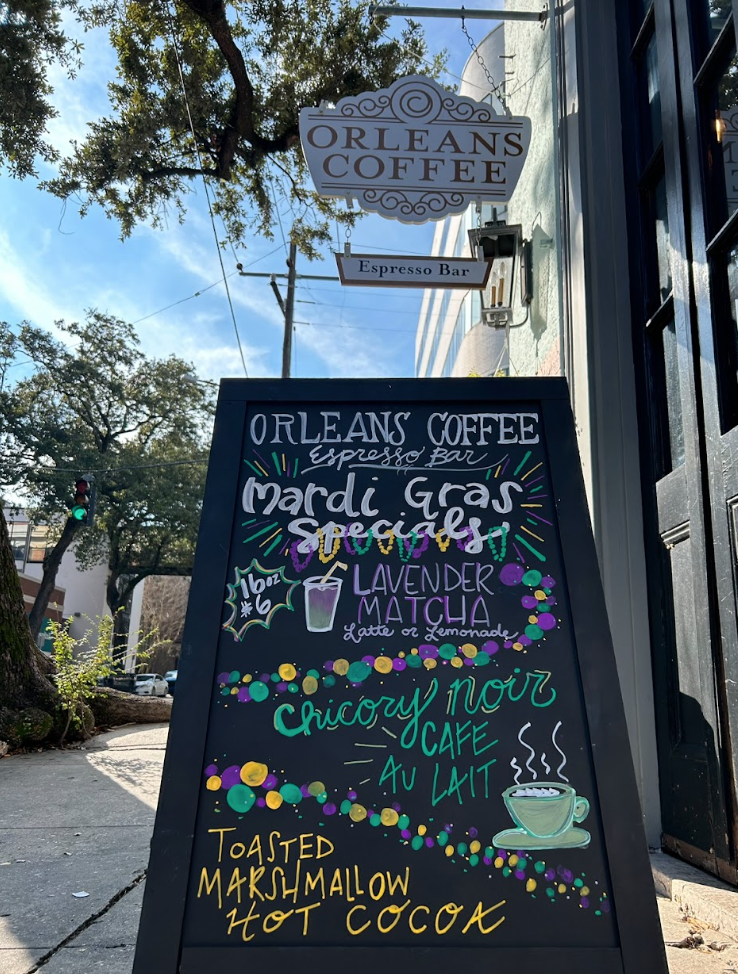 ORLEANS
COFFEE
Espresso Bar
ORLEANS COFFEE
Espresso Bar
Mardi Gras
Specials
16oz
$6
LAVENDER
MATCHA
Latte or Lemonade
Chicory Noir
CAFE
AU LAIT
TOASTED
MARSHMALLOW
HOT COCOA